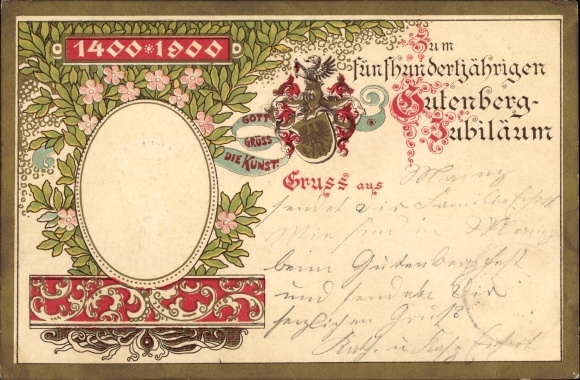 1400 * 1900
Zum
fünfhundertjährigen
Gutenberg-
Jubiläum
GOTT
GRÜSS
DIE KUNST.
Gruss aus Mainz
sendet Dir Familie
Wir sind in Mainz
beim Gutenbergfest
und senden Dir
herzlichen Gruß
Kath. u.